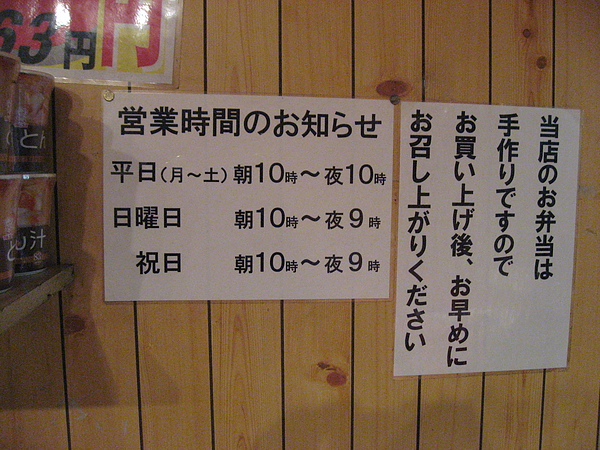 63円
円
営業時間のお知らせ
平日(月～土) 朝10時～夜10時
日曜日 朝10時～夜9時
祝日 朝10時～夜9時
当店のお弁当は
手作りですので
お買い上げ後、お早めに
お召し上がりください
とん
とん汁